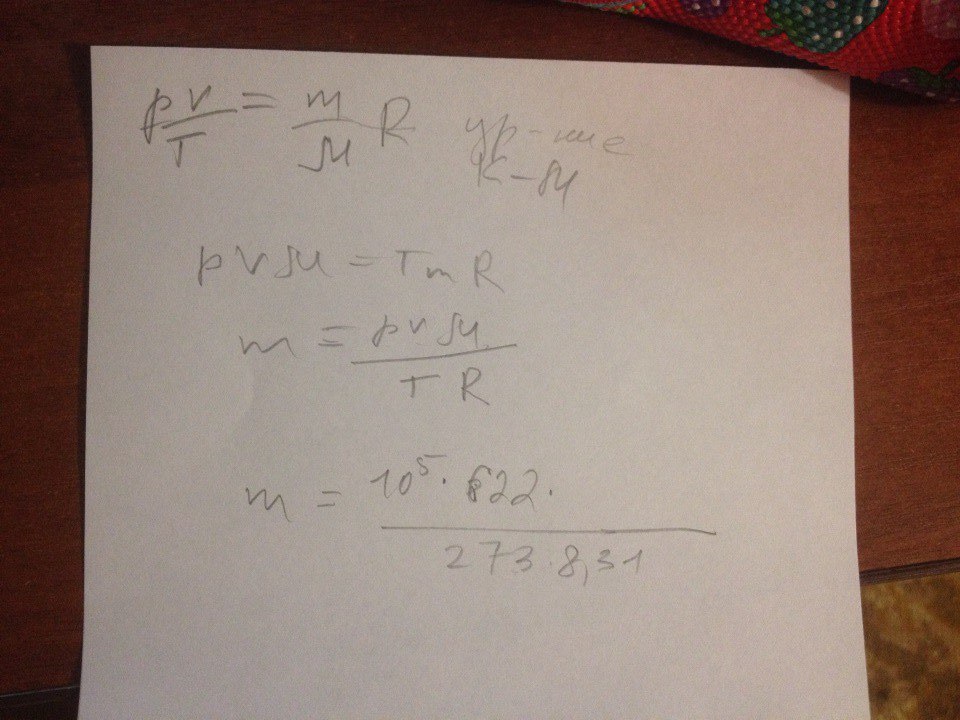 pV/T = m/μ R ур-ние
К-М
pVμ = TmR
m = pVμ/TR
m = 10⁵·622·/273·8,31